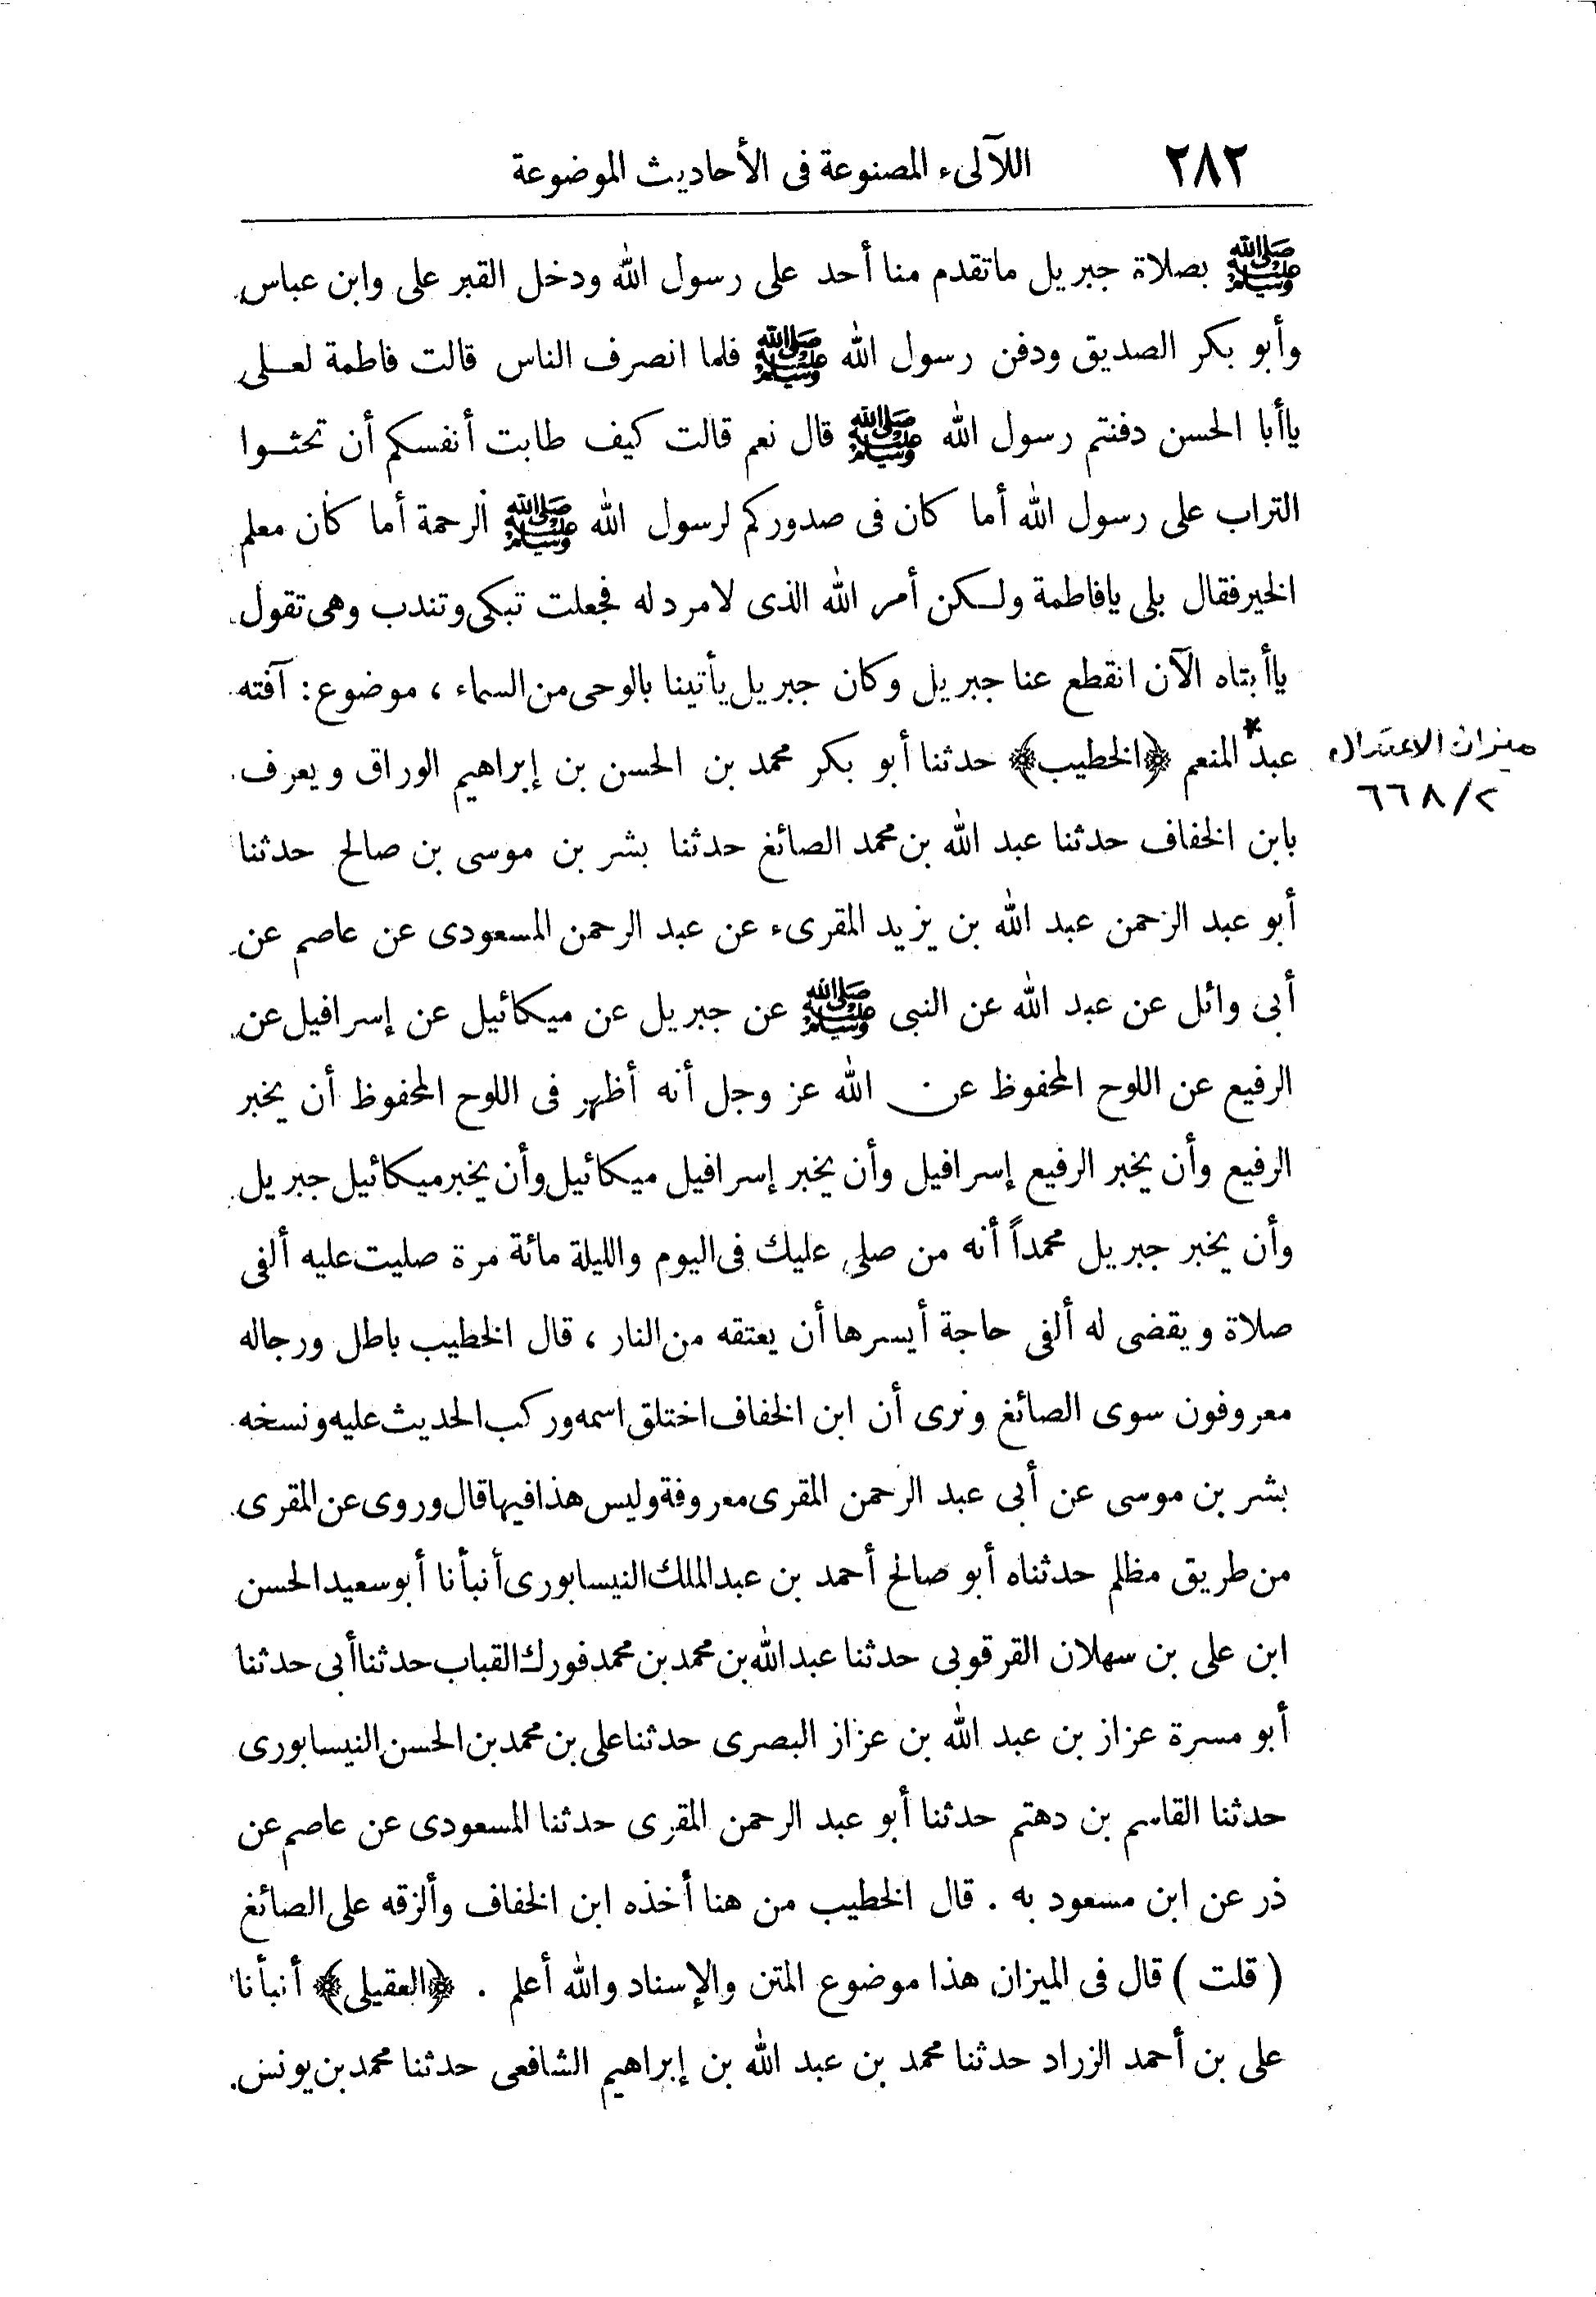 ٢٨٢ اللآلىء المصنوعة فى الأحاديث الموضوعة
ﷺ بصلاة جبريل ماتقدم منا أحد على رسول الله ودخل القبر على وابن عباس
وأبو بكر الصديق ودفن رسول الله ﷺ فلما انصرف الناس قالت فاطمة لعلى
ياأبا الحسن دفنتم رسول الله ﷺ قال نعم قالت كيف طابت أنفسكم أن تحثوا
التراب على رسول الله أما كان فى صدوركم لرسول الله ﷺ الرحمة أما كان معلم
الخير فقال بلى يافاطمة ولكن أمر الله الذى لامرد له فجعلت تبكى وتندب وهى تقول
ياأبتاه الآن انقطع عنا جبريل وكان جبريل يأتينا بالوحى من السماء ، موضوع : آفته
عبد* المنعم ﴿الخطيب﴾ حدثنا أبو بكر محمد بن الحسن بن إبراهيم الوراق ويعرف
ميزان الاعتدال
٢/٦٦٨
بابن الخفاف حدثنا عبد الله بن محمد الصائغ حدثنا بشر بن موسى بن صالح حدثنا
أبو عبد الرحمن عبد الله بن يزيد المقرىء عن عبد الرحمن المسعودى عن عاصم عن
أبى وائل عن عبد الله عن النبى ﷺ عن جبريل عن ميكائيل عن إسرافيل عن
الرفيع عن اللوح المحفوظ عن الله عز وجل أنه أظهر فى اللوح المحفوظ أن يخبر
الرفيع وأن يخبر الرفيع إسرافيل وأن يخبر إسرافيل ميكائيل وأن يخبر ميكائيل جبريل
وأن يخبر جبريل محمداً أنه من صلى عليك فى اليوم والليلة مائة مرة صليت عليه ألفى
صلاة ويقضى له ألفى حاجة أيسرها أن يعتقه من النار ، قال الخطيب باطل ورجاله
معروفون سوى الصائغ ونرى أن ابن الخفاف اختلق اسمه وركب الحديث عليه ونسخه
بشر بن موسى عن أبى عبد الرحمن المقرى معروفة وليس هذا فيها قال وروى عن المقرى
من طريق مظلم حدثناه أبو صالح أحمد بن عبد الملك النيسابورى أنبأنا أبو سعيد الحسن
ابن على بن سهلان القرقوبى حدثنا عبد الله بن محمد بن محمد فورك القباب حدثنا أبى حدثنا
أبو مسرة عزاز بن عبد الله بن عزاز البصرى حدثنا على بن محمد بن الحسن النيسابورى
حدثنا القاسم بن دهتم حدثنا أبو عبد الرحمن المقرى حدثنا المسعودى عن عاصم عن
ذر عن ابن مسعود به . قال الخطيب من هنا أخذه ابن الخفاف وألزقه على الصائغ
( قلت ) قال فى الميزان هذا موضوع المتن والإسناد والله أعلم . ﴿العقيلى﴾ أنبأنا
على بن أحمد الزراد حدثنا محمد بن عبد الله بن إبراهيم الشافعى حدثنا محمد بن يونس